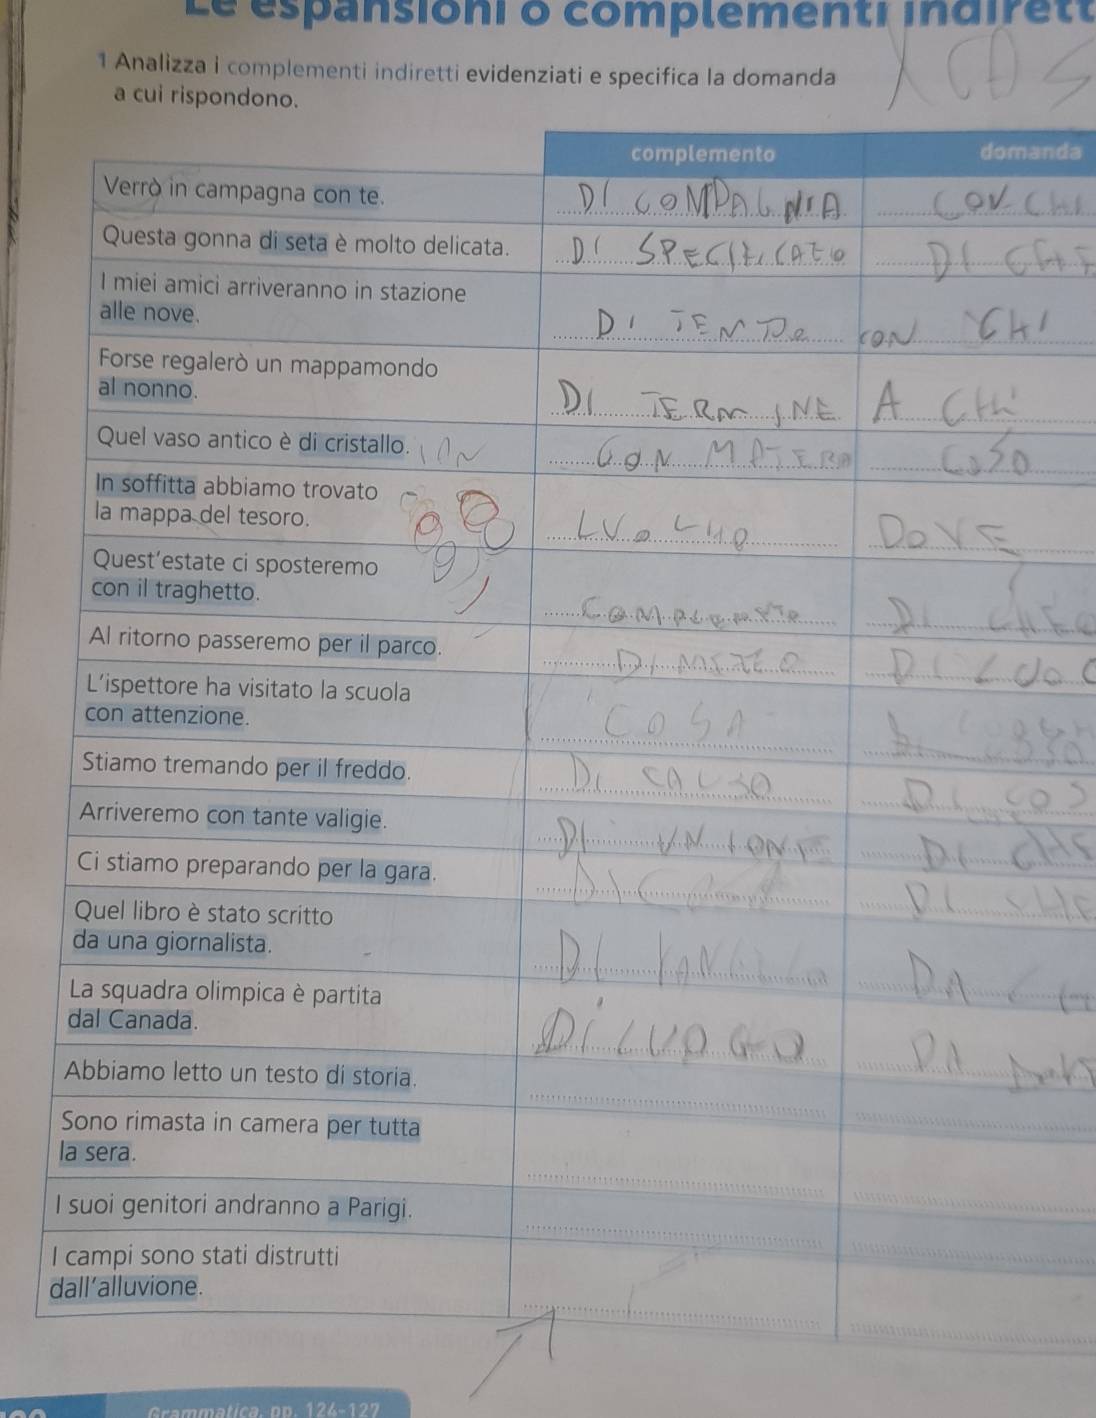 Le espansioni o complementi indirett
1 Analizza i complementi indiretti evidenziati e specifica la domanda
a cui rispondono.
complemento domanda
Verrò in campagna con te. DI COMPAGNIA CON CHI
Questa gonna di seta è molto delicata. DI SPECIFICATO DI CHE
I miei amici arriveranno in stazione
alle nove. DI TEMPO CON CHI
Forse regalerò un mappamondo
al nonno. DI TERMINE A CHI
Quel vaso antico è di cristallo. CON MATERA COSO
In soffitta abbiamo trovato
la mappa del tesoro. DOVE
Quest'estate ci sposteremo
con il traghetto. DI CHE
Al ritorno passeremo per il parco. DI
L'ispettore ha visitato la scuola
con attenzione. COSA
Stiamo tremando per il freddo. DI CAUSO DI COS
Arriveremo con tante valigie. DI UNIONE DI CHE
Ci stiamo preparando per la gara. DI CHE
Quel libro è stato scritto
da una giornalista. DI DA
La squadra olimpica è partita
dal Canada. DI LUOGO DA
Abbiamo letto un testo di storia.
Sono rimasta in camera per tutta
la sera.
I suoi genitori andranno a Parigi.
I campi sono stati distrutti
dall'alluvione.
Grammatica, pp. 124-127